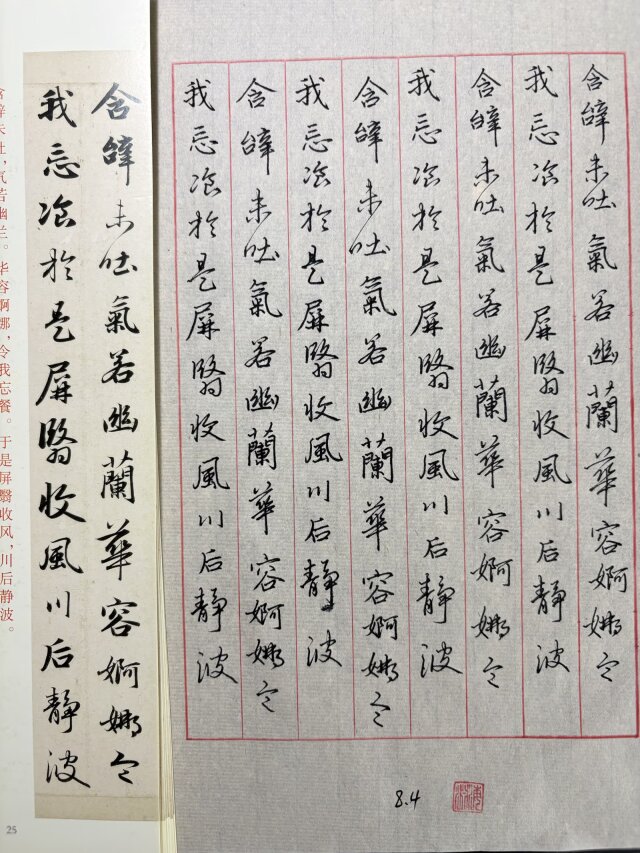 含辝未吐氣若幽蘭華容婀娜令
我忘飡於是屏翳收風川后靜波
含辞未吐,气若幽兰。华容婀娜,令我忘餐。于是屏翳收风,川后静波。
25
含辝未吐氣若幽蘭華容婀娜令
我忘飡於是屏翳收風川后靜波
含辝未吐氣若幽蘭華容婀娜令
我忘飡於是屏翳收風川后靜波
含辝未吐氣若幽蘭華容婀娜令
我忘飡於是屏翳收風川后靜波
含辝未吐氣若幽蘭華容婀娜令
我忘飡於是屏翳收風川后靜波
8.4